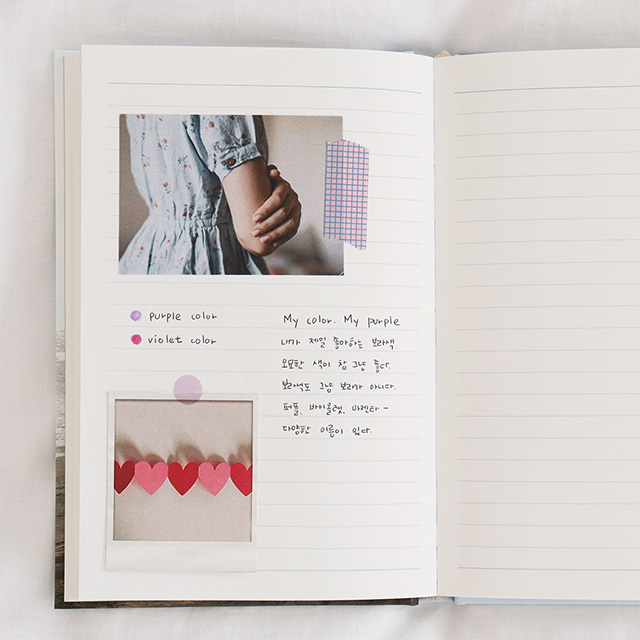 purple color
violet color
My color. My purple
내가 제일 좋아하는 보라색
오묘한 색이 참 그냥 좋다.
보라색도 그냥 보라가 아니다.
퍼플, 바이올렛, 마젠타 -
다양한 이름이 있다.